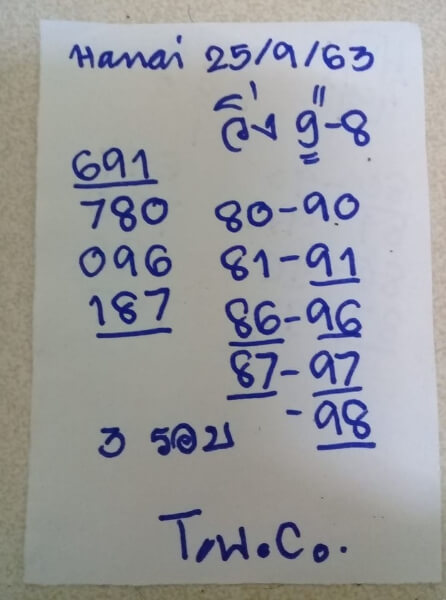 Hanai 25/9/63
วิ่ง 9-8
691
780 80-90
096 81-91
187 86-96
87-97
-98
3 รอบ
T.พ.C.